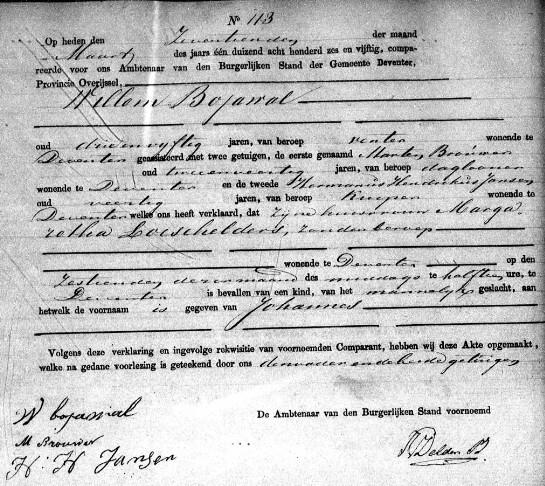 No 113
Op heden den Zeventienden der maand
Maart des jaars één duizend acht honderd zes en vijftig, compa-
reerde voor ons Ambtenaar van den Burgerlijken Stand der Gemeente Deventer,
Provincie Overijssel,
Willem Bojawal
oud drieenvyftig jaren, van beroep venter wonende te
Deventer geassisteerd met twee getuigen, de eerste genaamd Marten Brouwer
oud tweeenveertig jaren, van beroep daglooner
wonende te Deventer en de tweede Hermanus Hendrikus Jansen
oud veertig jaren, van beroep Kuiper wonende te
Deventer welke ons heeft verklaard, dat zijne huisvrouw Marga-
retha Loeschelders, zonder beroep
wonende te Deventer op den
Zestienden dezer maand des middags te half tien ure, te
Deventer is bevallen van een kind, van het mannelyk geslacht, aan
hetwelk de voornaam is gegeven van Johannes
Volgens deze verklaring en ingevolge rekwisitie van voornoemden Comparant, hebben wij deze Akte opgemaakt,
welke na gedane voorlezing is geteekend door ons den vader en de beide getuigen
De Ambtenaar van den Burgerlijken Stand voornoemd
W bojawal
M Brouwer
H. H Jansen
Delden